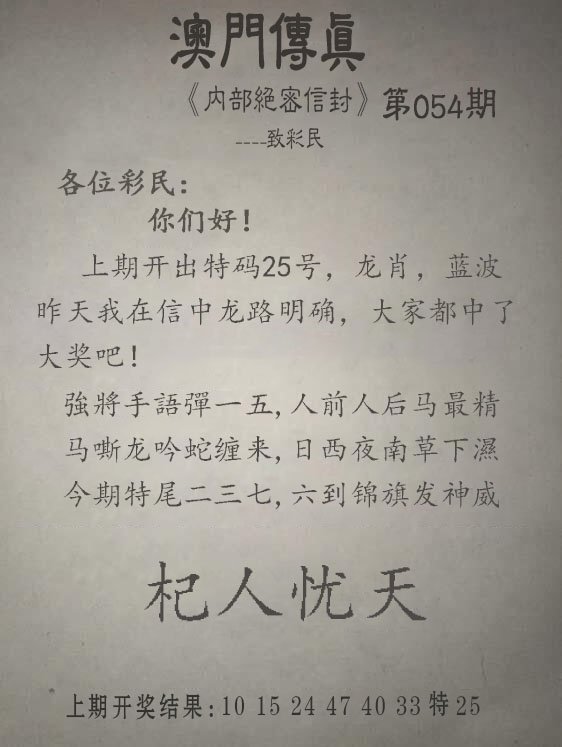 澳門傳眞
《内部絕密信封》第054期
----致彩民
各位彩民：
你们好！
上期开出特码25号，龙肖，蓝波
昨天我在信中龙路明确，大家都中了
大奖吧！
強將手語彈一五,人前人后马最精
马嘶龙吟蛇缠来,日西夜南草下濕
今期特尾二三七,六到锦旗发神威
杞人忧天
上期开奖结果:10 15 24 47 40 33 特 25